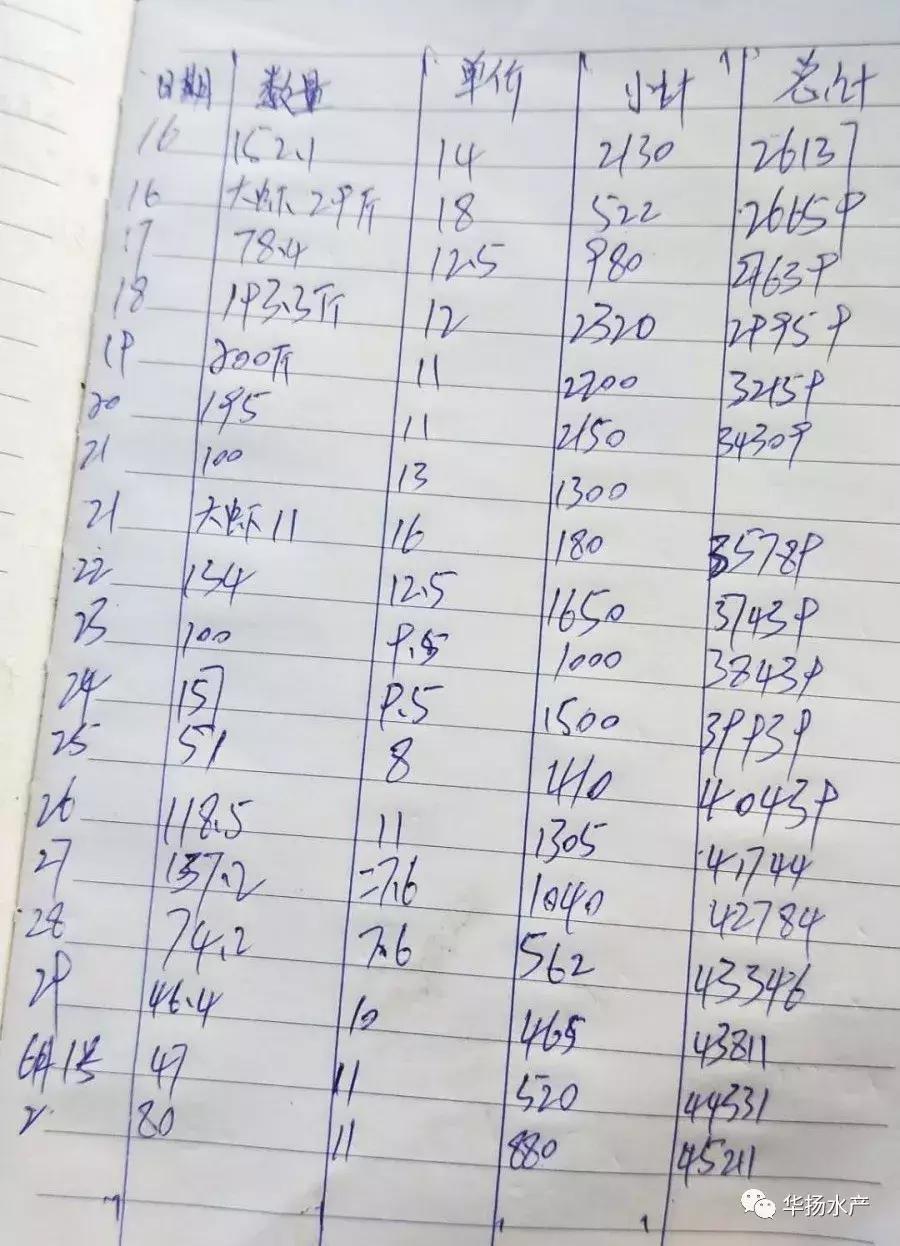 日期 数量 单价 小计 总合计
16 152.1 14 2130 26137
16 大虾29斤 18 522 26659
17 78.4 12.5 980 27639
18 193.3斤 12 2320 29959
19 200斤 11 2200 32159
20 195 11 2150 34309
21 100 13 1300
21 大虾11 16 180 35789
22 134 12.5 1650 37439
23 100 9.5 1000 38439
24 157 9.5 1500 39939
25 51 8 410 40439
26 118.5 11 1305 41744
27 137.2 =7.6 1040 42784
28 74.2 7.6 562 43346
29 46.4 10 465 43811
6月1号 47 11 520 44331
2 80 11 880 45211
华扬水产